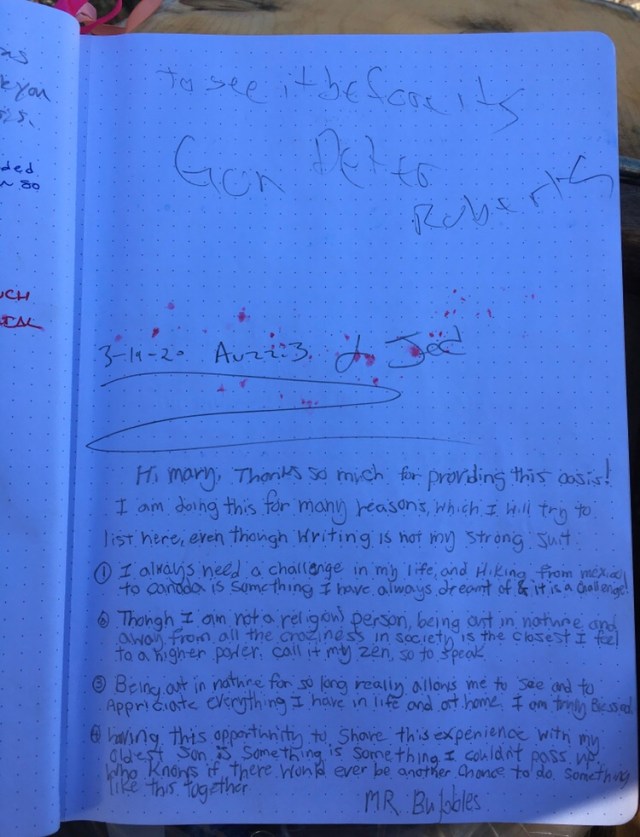 you
ded
to see it before its
Gon
Roberts
3-19-20
Jed
Hi mary, Thanks so much for providing this oasis!
I am doing this for many reasons, which I will try to
list here, even though writing is not my strong suit
① I always need a challenge in my life, and Hiking from mexico
to canada is something I have always dreamt of & it is a challenge!
② Though I am not a religious person, being out in nature and
away from all the craziness in society is the closest I feel
to a higher power. call it my zen, so to speak
③ Being out in nature for so long really allows me to see and to
Appriciate everything I have in life and at home. I am truly Blessed
④ having this opportunity to share this experience with my
oldest son is something is something I couldn't pass up.
Who knows if there would ever be another chance to do something
like this together
MR. Bubbles